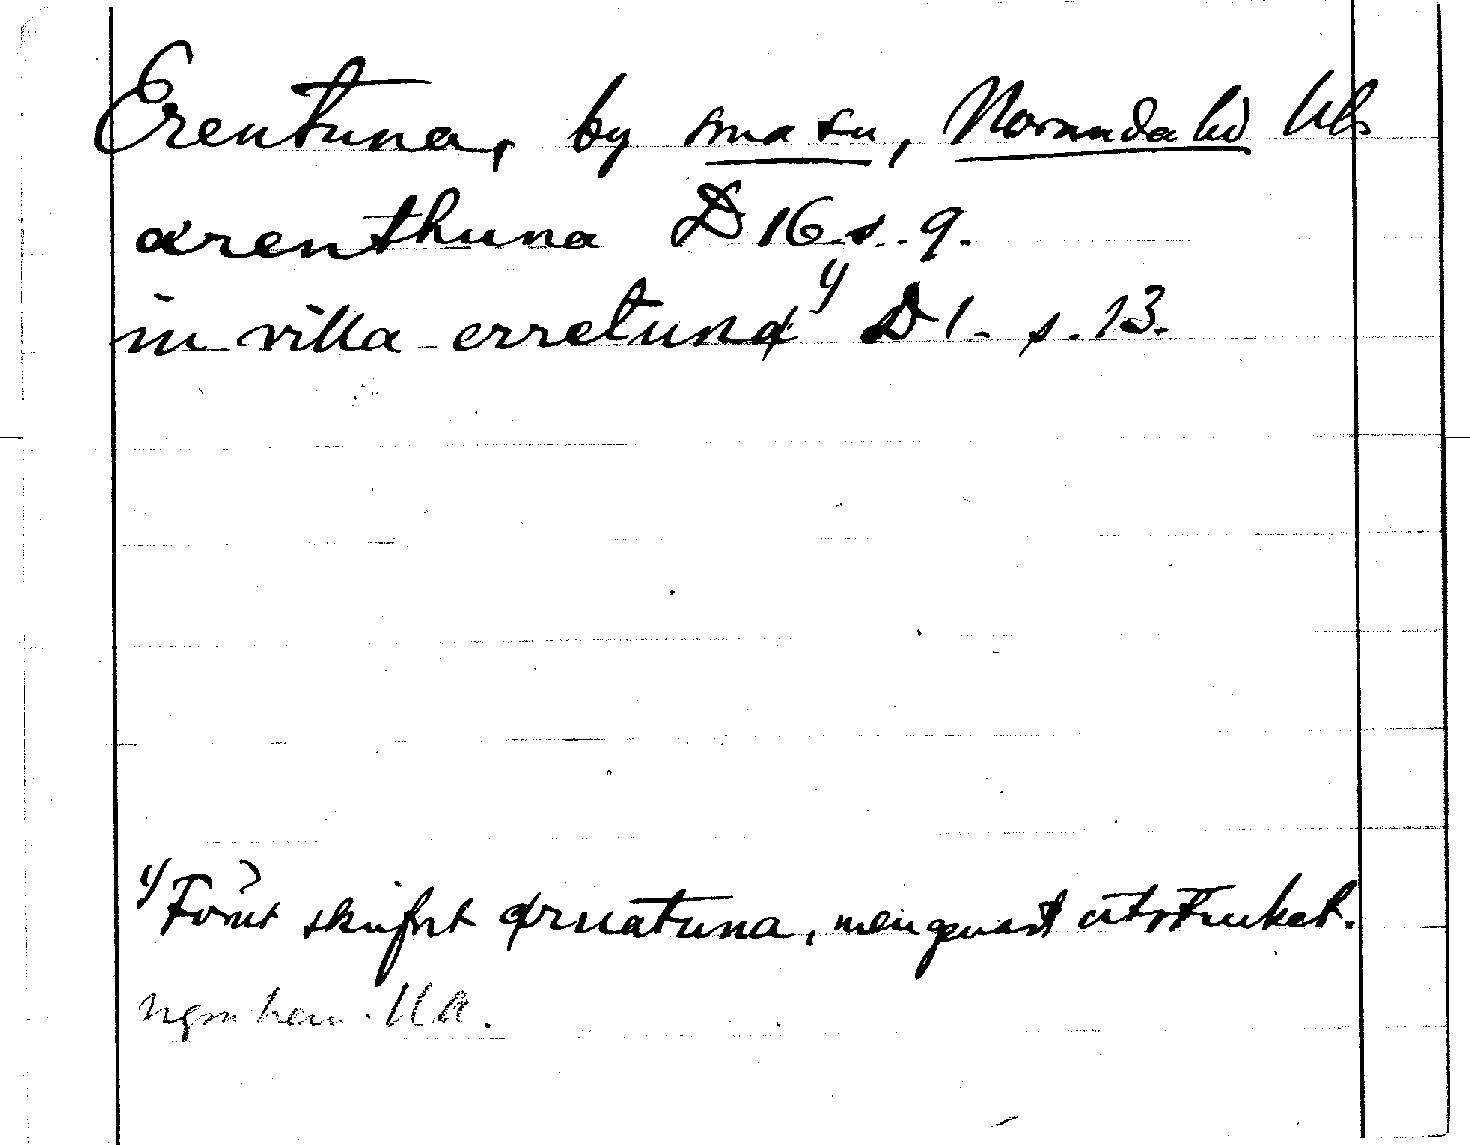 Erentuna, by Små sn, Norunda hd Ul.
ærenthuna D 16 s. 9.
in villa erretuna 1) D 1. s. 13.
1) Först skrifvet ærnatuna, men genast utstruket.